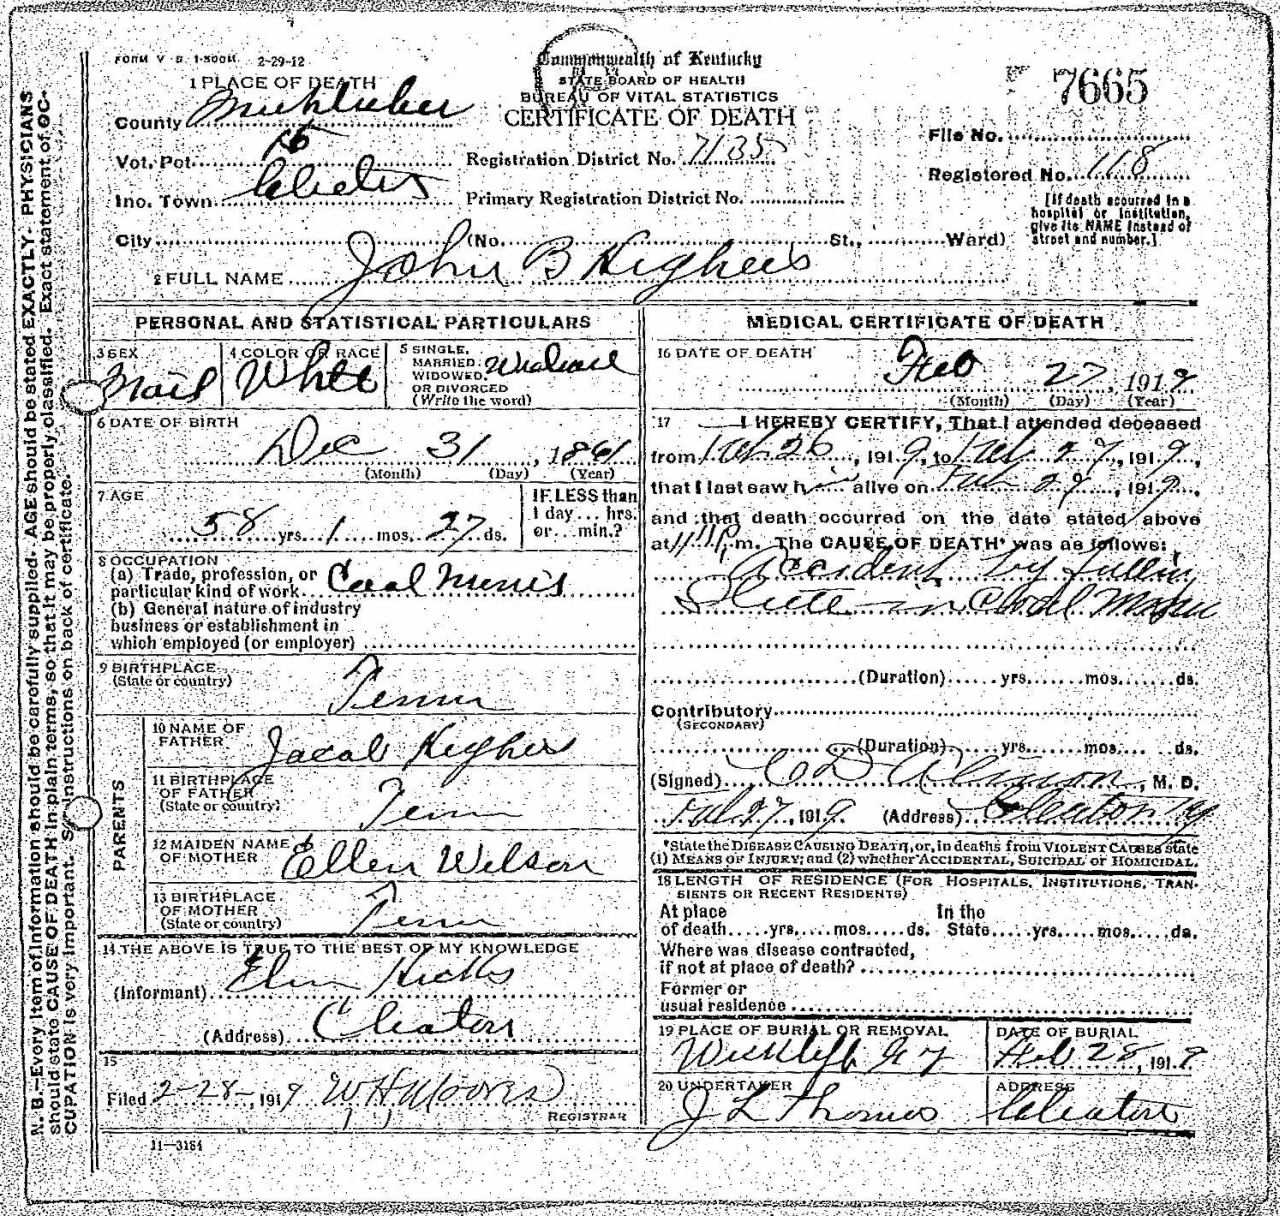 FORM V. S. 1-500M 2-29-12
Commonwealth of Kentucky
STATE BOARD OF HEALTH
BUREAU OF VITAL STATISTICS
CERTIFICATE OF DEATH
7665
1 PLACE OF DEATH
County
Vot. Pct. 15
Ino. Town Cleaton
City (No. St., Ward)
Registration District No. 7135
Primary Registration District No.
File No.
Registered No. 118
[If death occurred in a
hospital or institution,
give its NAME instead of
street and number.]
2 FULL NAME John B Highees
PERSONAL AND STATISTICAL PARTICULARS
3 SEX
Mail
4 COLOR OR RACE
White
5 SINGLE,
MARRIED,
WIDOWED,
OR DIVORCED
(Write the word)
6 DATE OF BIRTH
Dec 31, 1861
(Month) (Day) (Year)
7 AGE
58 yrs. 1 mos. 27 ds.
IF LESS than
1 day... hrs.
or... min.?
8 OCCUPATION
(a) Trade, profession, or
particular kind of work Coal
(b) General nature of industry
business or establishment in
which employed (or employer)
9 BIRTHPLACE
(State or country)
Tenn
PARENTS
10 NAME OF
FATHER
Jacob Highees
11 BIRTHPLACE
OF FATHER
(State or country)
Tenn
12 MAIDEN NAME
OF MOTHER
Ellen Wilson
13 BIRTHPLACE
OF MOTHER
(State or country)
Tenn
14 THE ABOVE IS TRUE TO THE BEST OF MY KNOWLEDGE
(Informant) Hicks
(Address) Cleaton
15
Filed 2-28-, 1919 W H Moores
REGISTRAR
11-3184
MEDICAL CERTIFICATE OF DEATH
16 DATE OF DEATH
Feb 27, 1919
(Month) (Day) (Year)
17 I HEREBY CERTIFY, That I attended deceased
from Feb 26, 1919, to Feb 27, 1919,
that I last saw him alive on Feb 27, 1919,
and that death occurred on the date stated above
at 11 P m. The CAUSE OF DEATH* was as follows:
Accident by fallin
Slate in Coal
(Duration) yrs. mos. ds.
Contributory
(SECONDARY)
(Duration) yrs. mos. ds.
(Signed) C D, M. D.
Feb 27, 1919. (Address) Cleaton Ky
*State the DISEASE CAUSING DEATH, or, in deaths from VIOLENT CAUSES state
(1) MEANS OF INJURY; and (2) whether ACCIDENTAL, SUICIDAL or HOMICIDAL.
18 LENGTH OF RESIDENCE (FOR HOSPITALS, INSTITUTIONS, TRAN-
SIENTS OR RECENT RESIDENTS)
At place
of death yrs. mos. ds.
In the
State yrs. mos. ds.
Where was disease contracted,
if not at place of death?
Former or
usual residence
19 PLACE OF BURIAL OR REMOVAL
Wickliffe Ky
DATE OF BURIAL
Feb 28, 1919
20 UNDERTAKER
J L Thomas
ADDRESS
Cleaton
N. B.—Every item of information should be carefully supplied. AGE should be stated EXACTLY. PHYSICIANS
should state CAUSE OF DEATH in plain terms, so that it may be properly classified. Exact statement of OC-
CUPATION is very important. See instructions on back of certificate.